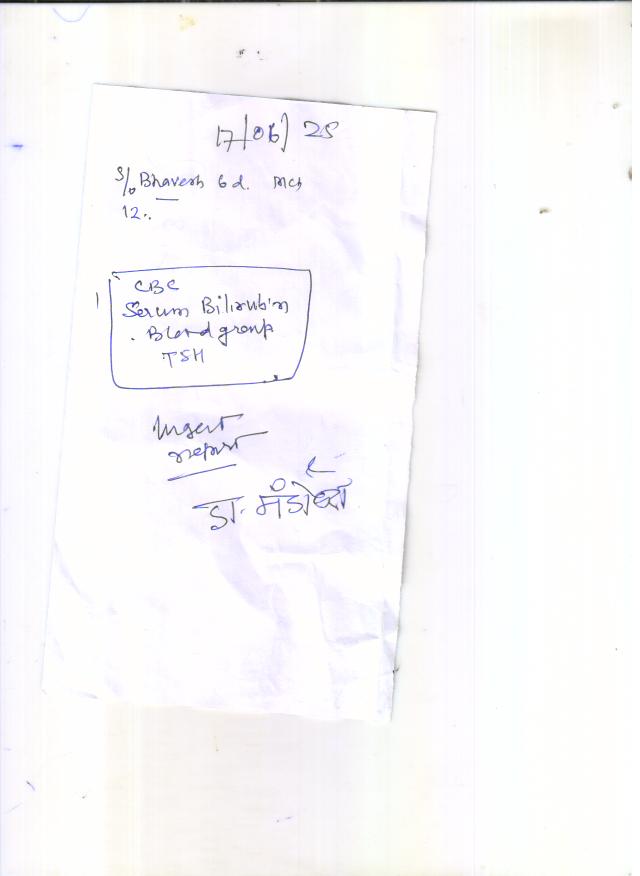 17/06/25
S/o Bhavesh 6 d. Mch
12..
CBC
Serum Bilirubin
. Blood group
TSH
Urgent
report
डा. मंडोर्या